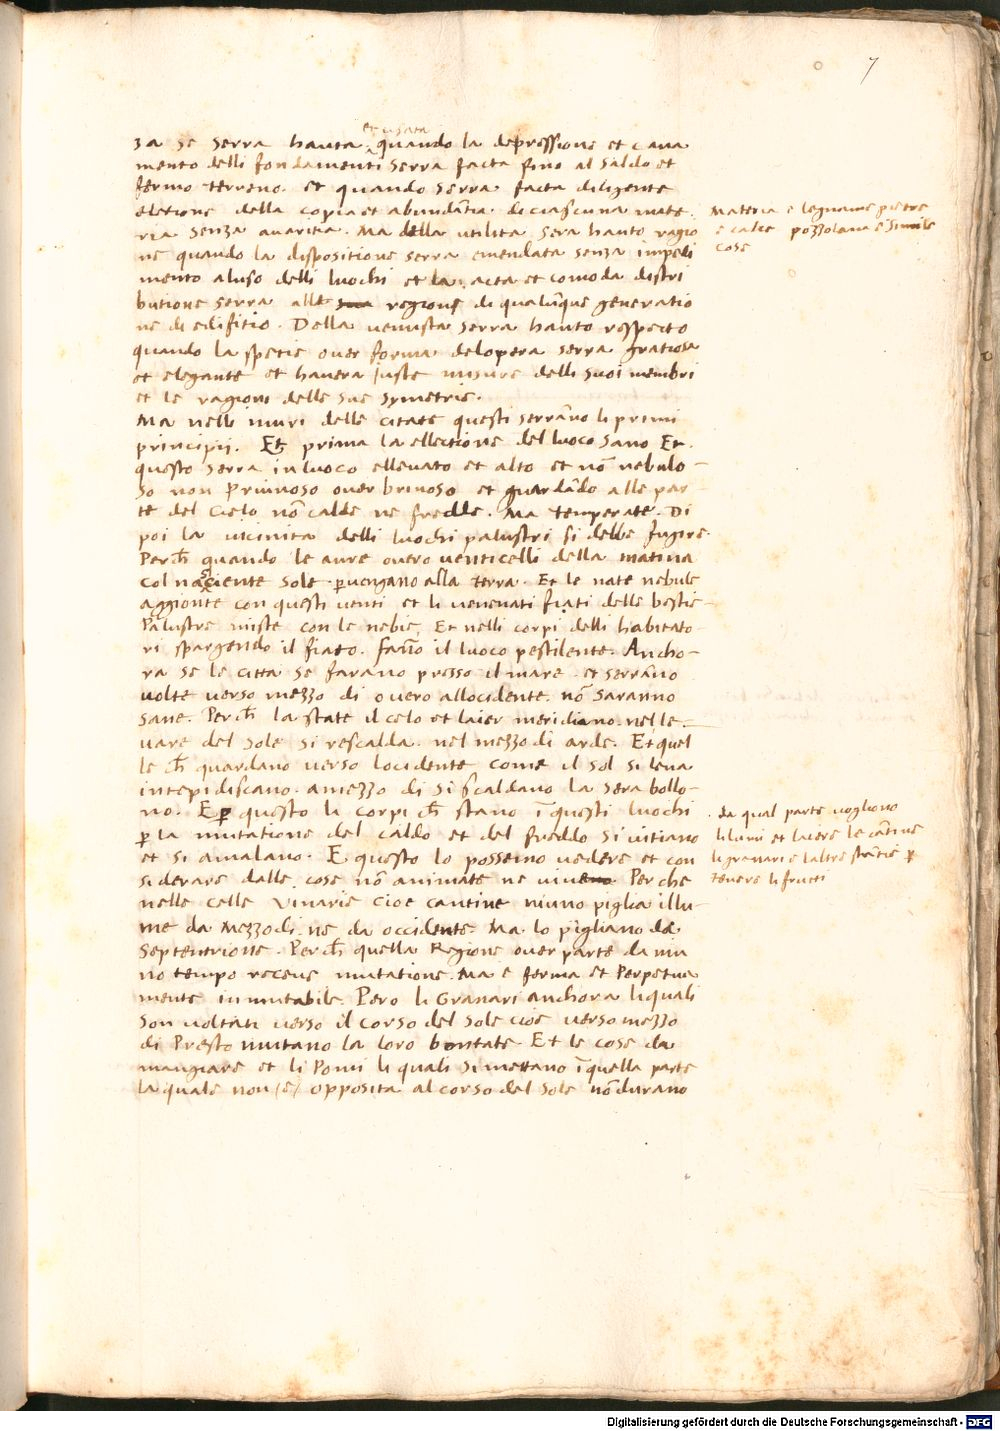 7
et usata
za se serra hauta quando la depressione et caua
mento delli fondamenti serra facta fino al saldo et
fermo terreno. et quando serra facta diligente
eletione della copia et abundātia di ciascuna mate
ria senza auaritia. Ma della utilita sera hauto ragio
ne quando la dispositione serra emendata senza impedi
mento aluso delli luochi et la acta et comoda distri
butione serra alle regione di qualūque generatio
ne di edifitio. Della uenusta serra hauto respecto
quando la spetie ouer forma delopera serra gratiosa
et elegante et hauera juste misure delli suoi membri
et le ragioni delle sue symetrie.
Ma nelli muri delle citate questi serrāno li primi
principij. Et prima la ellectione del luoco sano Et
questo serra in luoco elleuato et alto et nō nebulo-
so non Priuinoso ouer brinoso et guardādo alle par
te del cielo nō calde ne fredde. Ma temperate. Di
poi la uicinita delli luochi palustri si debbe fugire.
Perch̄ quando le aure ouero uenticelli della matina
col nasciente sole peruengano alla terra. Et le nate nebule
aggionte con questi uenti et li uenenati fiati delle bestie
Palustre miste con le nebie, Et nelli corpi delli habitato-
ri spargendo il fiato. fāno il luoco pestilente. Ancho-
ra se le citta se farano presso il mare et serrāno
uolte uerso mezzo di ouero allocidente. nō saranno
sane. Perch̄ la state il celo et laier meridiano. nel le-
uare del sole si rescalda. nel mezzo di arde. Et quel
le ch̄ guardano uerso locidente come il sol si leua
intepidiscano. a mezzo di si scaldano la sera bollo-
no. E per questo li corpi ch̄ stano ī questi luochi
per la mutatione del caldo et del freddo si uitiano
et si amalano. E questo lo possemo uedere et con
siderare dalle cose nō animate ne Perche
nelle celle Vinarie cioe cantine niuno piglia illu-
me da Mezzodi ne da occidente Ma lo pigliano da
septentrione. Perch̄ quella Regione ouer parte da niu
no tempo receue mutatione. Ma e ferma et Perpetua
mente inmutabile. Pero li Granari anchora li quali
son uoltati uerso il corso del sole cioe uerso mezzo
di Presto mutano la loro bontate Et le cose da
mangiare et li Pomi li quali si mettano ī quella parte
la quale non (e) opposita al corso del sole nō durano
Materia e legname pietre
e calce pozzolana e simile
cose
da qual parte uogliono
li lumi et lacere le cātine
li granari e laltre stātie per
tenere li frutti
Digitalisierung gefördert durch die Deutsche Forschungsgemeinschaft - DFG